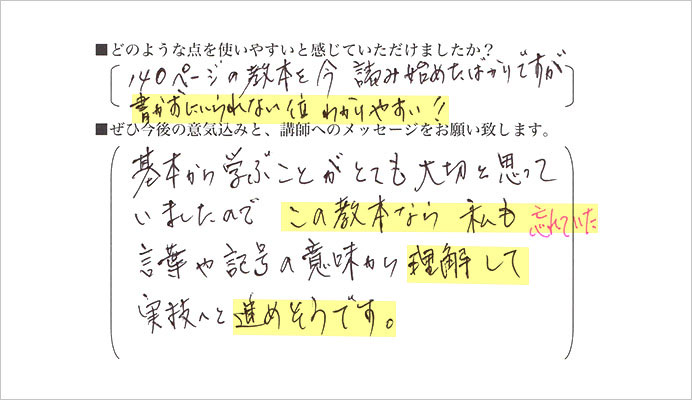 ■どのような点を使いやすいと感じていただけましたか?
140ページの教本を今 読み始めたばかりですが
書かずにいられない位 わかりやすい!
■ぜひ今後の意気込みと、講師へのメッセージをお願い致します。
基本から学ぶことがとても大切と思って
いましたので この教本なら 私も 忘れていた
言葉や記号の意味から理解して
実技へと進めそうです。